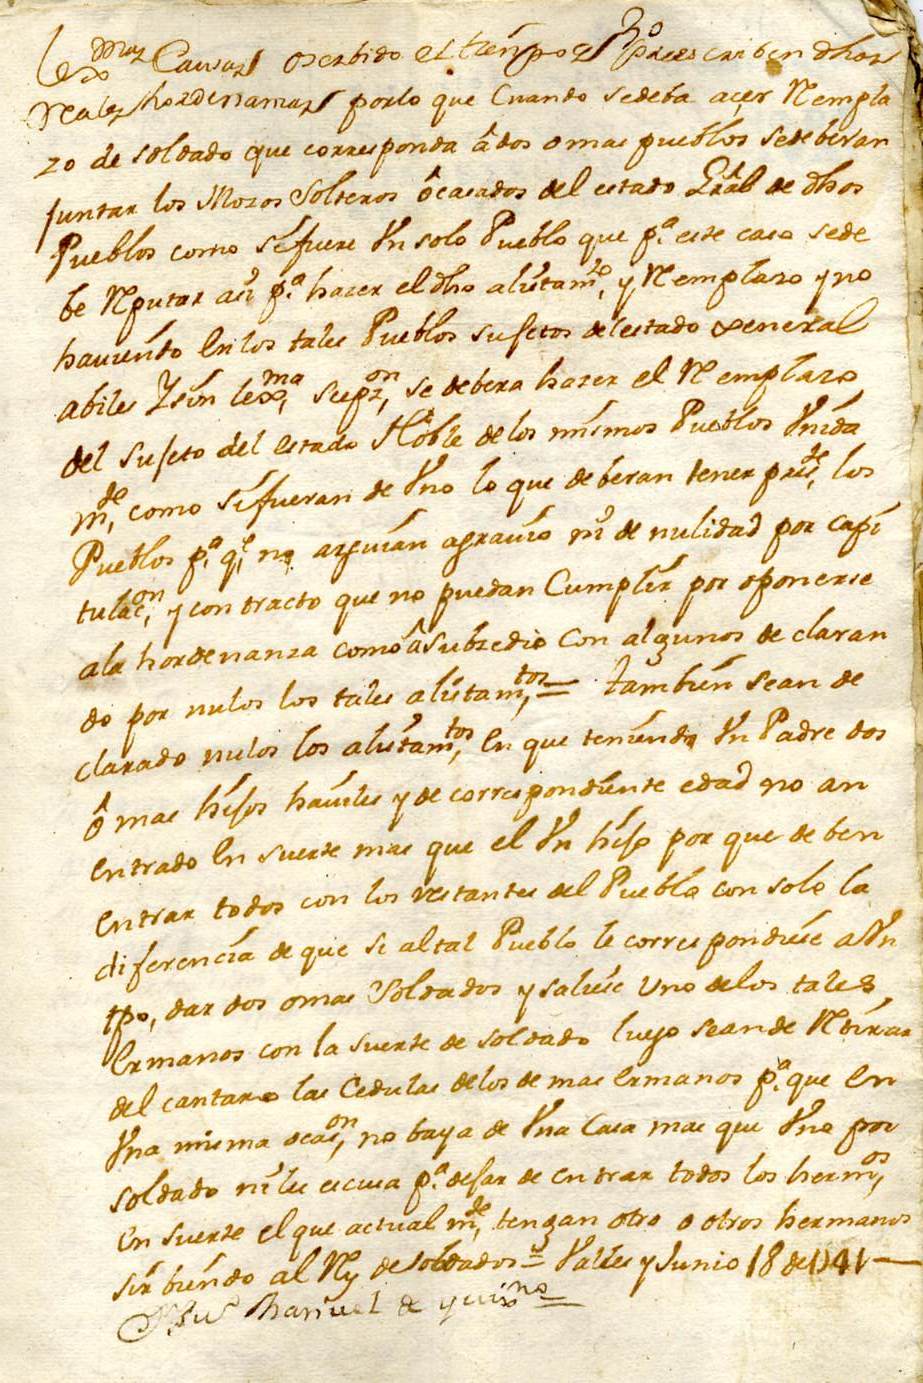 Causas oserbido el tiempo q prescriben dhas
Reales hordenansas porlo que Cuando sedeba acer Rempla
zo de soldado que corresponda â dos omas pueblos sedeberan
juntar los Mozos Solteros ô casados del estado Grãl de dhos
Pueblos como sifuere Un solo Pueblo que p.ª este caso sede
be Rputar asi p.ª hazer el dho alistam.to, y Remplazo y no
haviendo en los tales Pueblos sujetos del estado general
abiles Y sin lex.ma, sepz.on, se debera hazer el Remplazo
del sujeto del estado Noble de los mismos Pueblos Unida
m.de, como sifueran de Uno lo que deberan tener pres.de, los
Pueblos p.ª q.e no arguian agravio ni de nulidad por capi
tulac.on, y contracto que no puedan Cumplir por oponerse
ala hordenanza como â subzedido con algunos declaran
do por nulos los tales alistam.tos, = tambien sean de
clarado nulos los alistam.tos, en que teniendo Un Padre dos
ô mas hijos haviles y de correspondiente edad no an
entrado en suerte mas que el Un hijo por que deben
entrar todos con los restantes del Pueblo con solo la
diferencia de que si al tal Pueblo le correspondiese a Un
tpo, dar dos omas Soldados y saliese uno delos tales
ermanos con la suerte de soldado luego sean de Rtirar
del cantaro las Cedulas delos demas ermanos p.ª que en
Una misma ocas.on, no baya de Una Casa mas que Uno por
soldado ni les escusa p.ª dejar de entrar todos los herm.os,
en suerte el que actual m.de, tengan otro o otros hermanos
sirbiendo al Ry de soldados = Valles y Junio 18 de 1741 —
Manuel de quiño